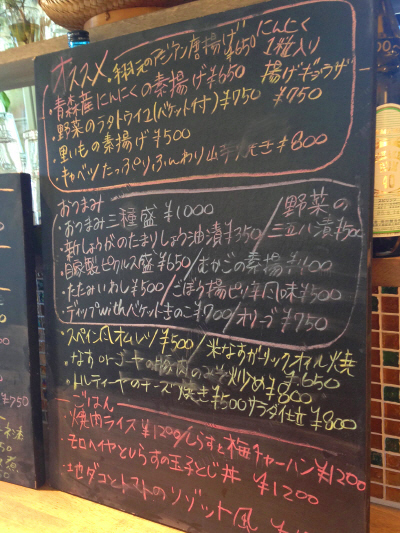 オススメ・手羽元のアジアン唐揚げ¥650 にんにく1粒入り
・青森産にんにくの素揚げ¥650 揚げギョウザ
・野菜のラタトゥイユ(バケット付)¥750 ¥750
・里いもの素揚げ¥500
・キャベツたっぷりふんわり山芋焼き¥800
おつまみ
・おつまみ三種盛¥1000 / 野菜の
・新しょうがのたまりしょう油漬¥350 / 三五八漬¥500
・自家製ピクルス盛¥650 / むかごの素揚
・たたみいわし¥500 / ごぼう揚ピリ辛風味¥500
・ディップwithバケットきのこ¥700 / オリーブ¥750
・スペイン風オムレツ¥500 / 米なすガーリックオイル焼
¥650
・なすのゴーヤの豚肉の 炒め¥800
・トルティーヤのチーズ焼き¥500 サラダ仕立¥800
ごはん
・焼肉ライス¥1200 / しらすと梅チャーハン¥1200
・モロヘイヤとしらすの玉子とじ丼 ¥1200
・地ダコとトマトのリゾット風